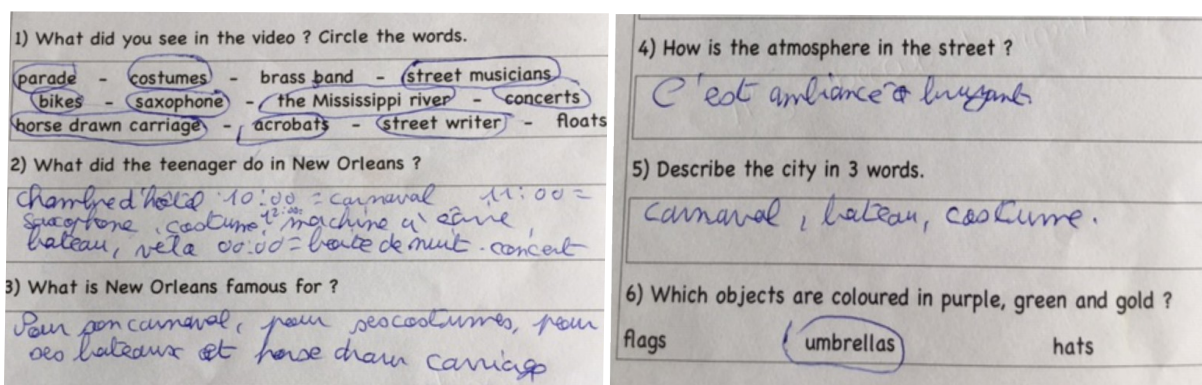 1) What did you see in the video ? Circle the words.
parade - costumes - brass band - street musicians
bikes - saxophone - the Mississippi river - concerts
horse drawn carriage - acrobats - street writer - floats
2) What did the teenager do in New Orleans ?
chambre d'hôtel 10:00 = carnaval 11:00 =
saxophone, costume, 12:00: machine à écrire,
bateau, vélo 00:00 = boite de nuit. concert
3) What is New Orleans famous for ?
Pour son carnaval, pour ses costumes, pour
ses bateaux et horse drawn carriage
4) How is the atmosphere in the street ?
C'est ambiance bruyant.
5) Describe the city in 3 words.
carnaval, bateau, costume.
6) Which objects are coloured in purple, green and gold ?
flags umbrellas hats